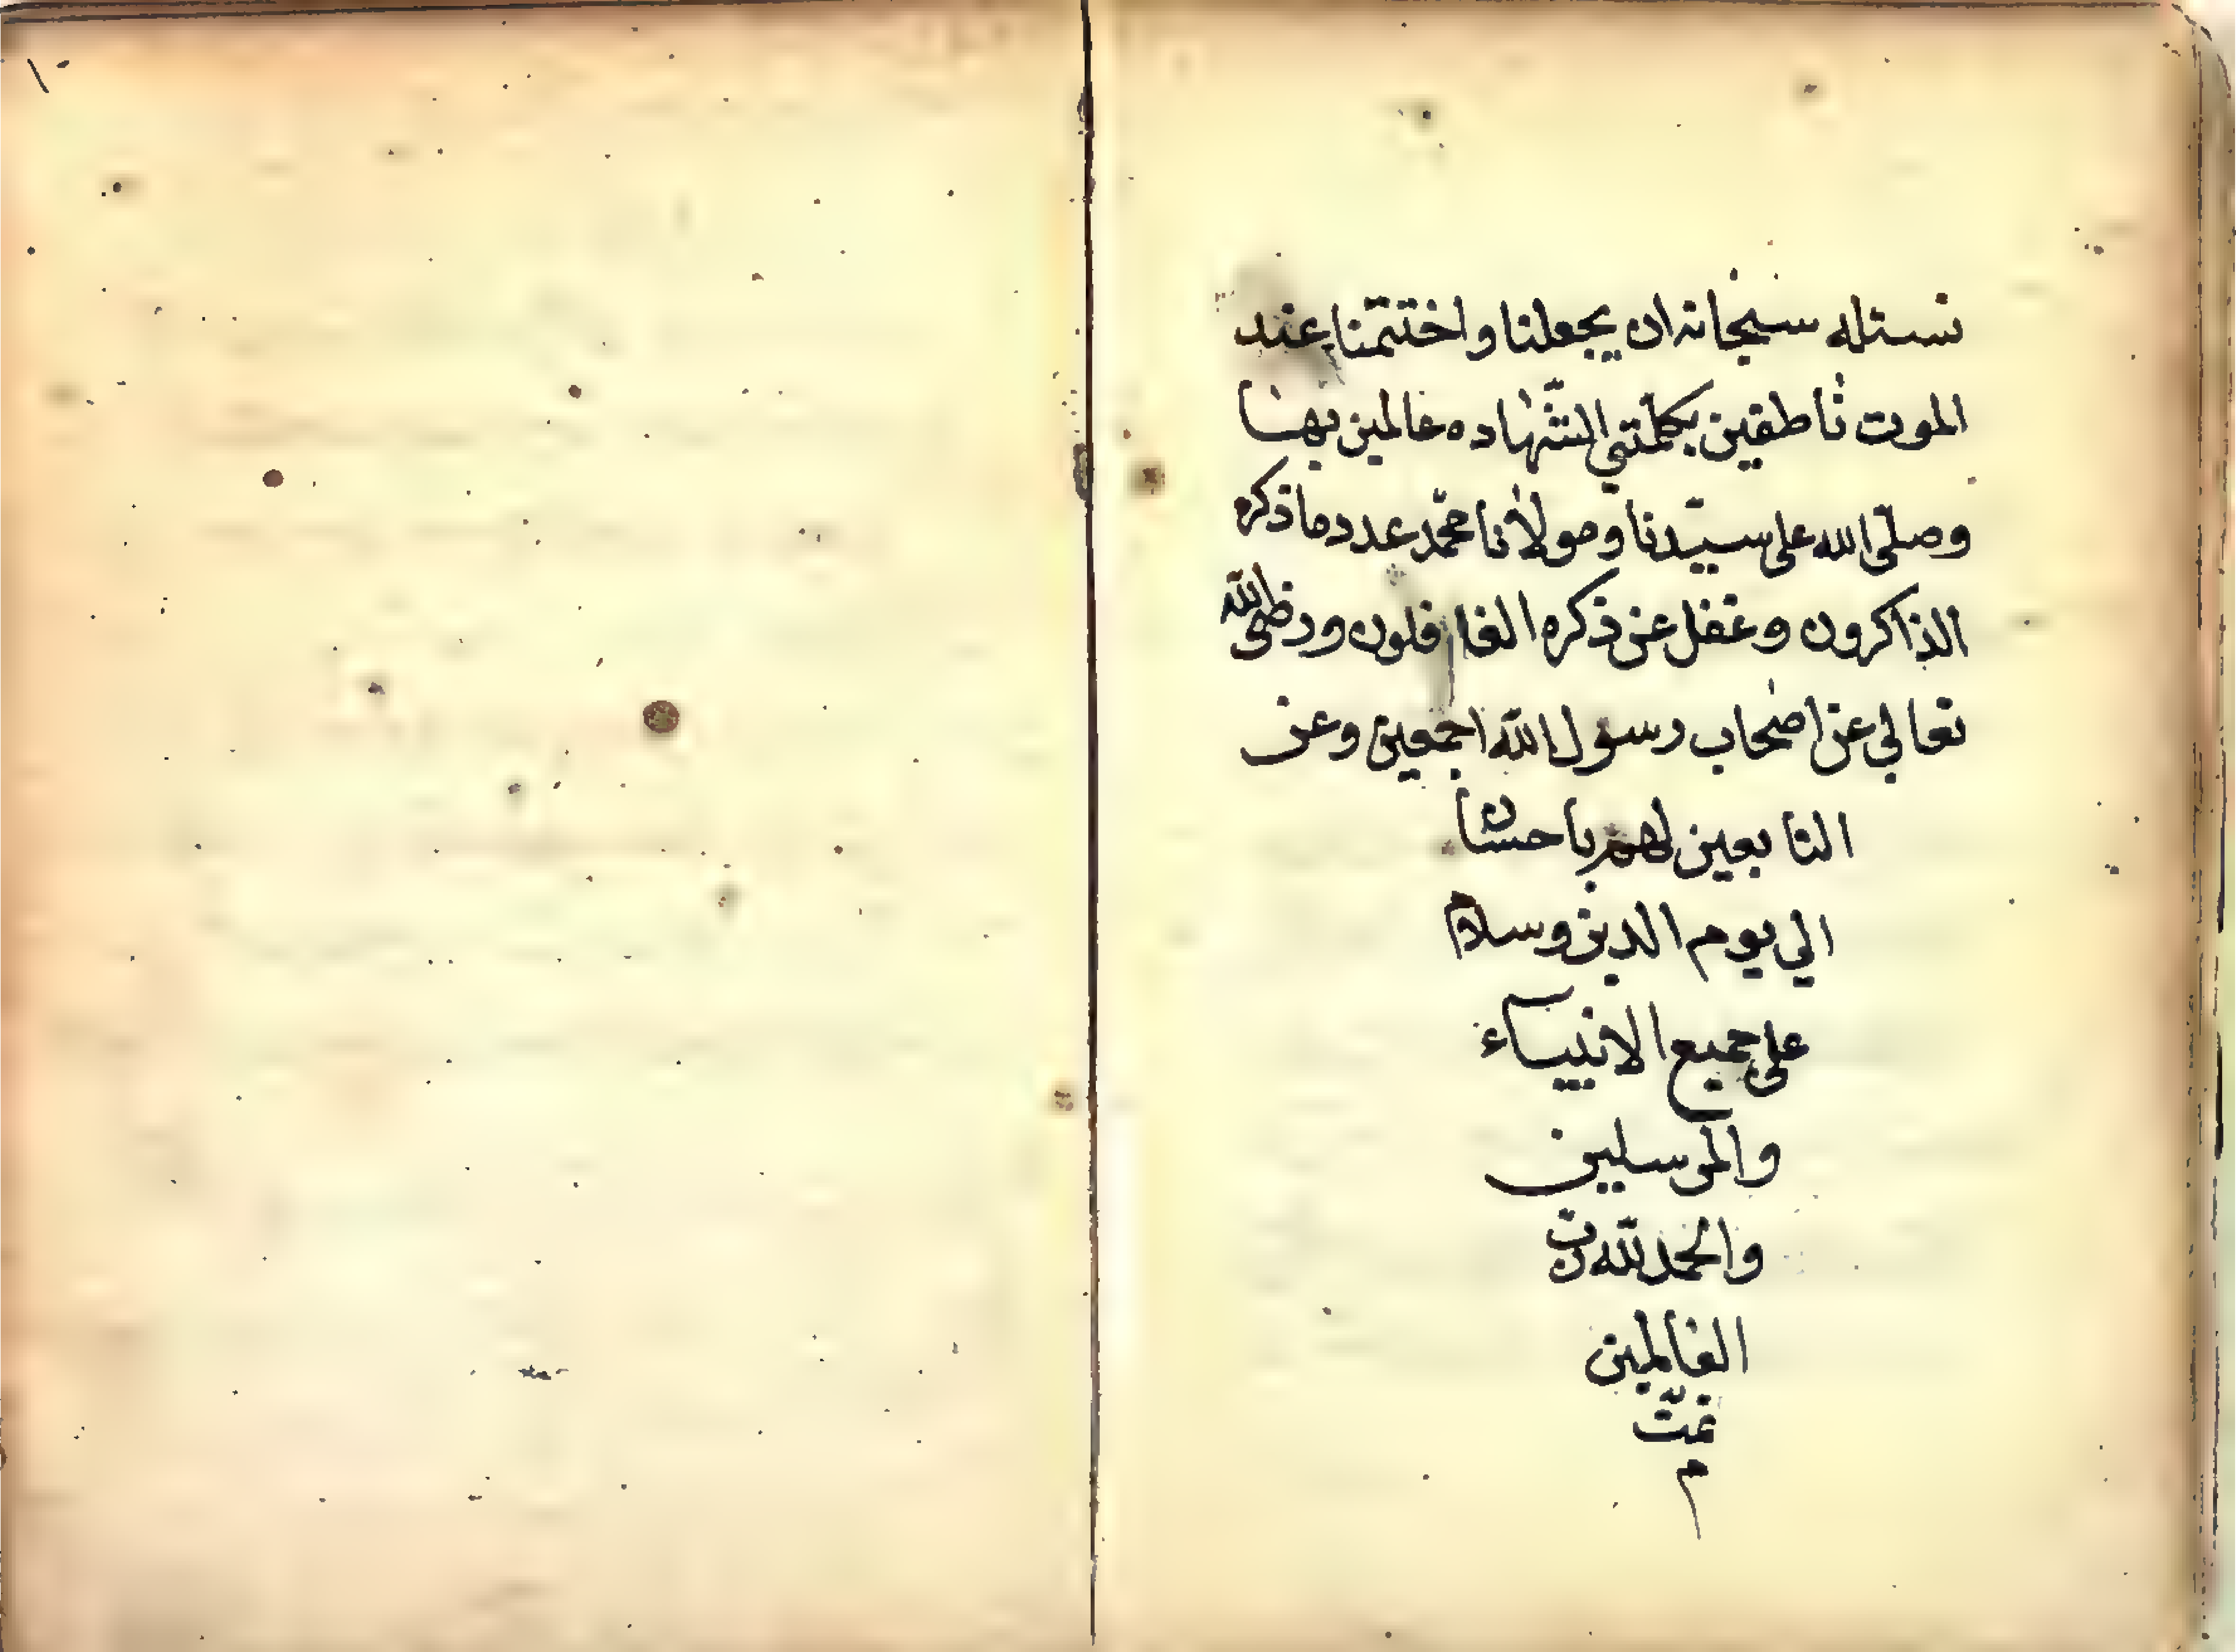 نسئله سبحانه ان يجعلنا واختتمنا عند
الموت ناطقين بكلمتي الشّهاده عالمين بها
وصلّى الله على سيّدنا ومولانا محمّد عدد ما ذكره
الذاكرون وغفل عن ذكره الغافلون ورضى الله
تعالي عن اصحاب رسول الله اجمعين وعن
التابعين لهم باحسان
الي يوم الدين وسلام
على جميع الانبيآء
والمرسلين
والحمد لله رب
العالمين
تمّت
م
١٠